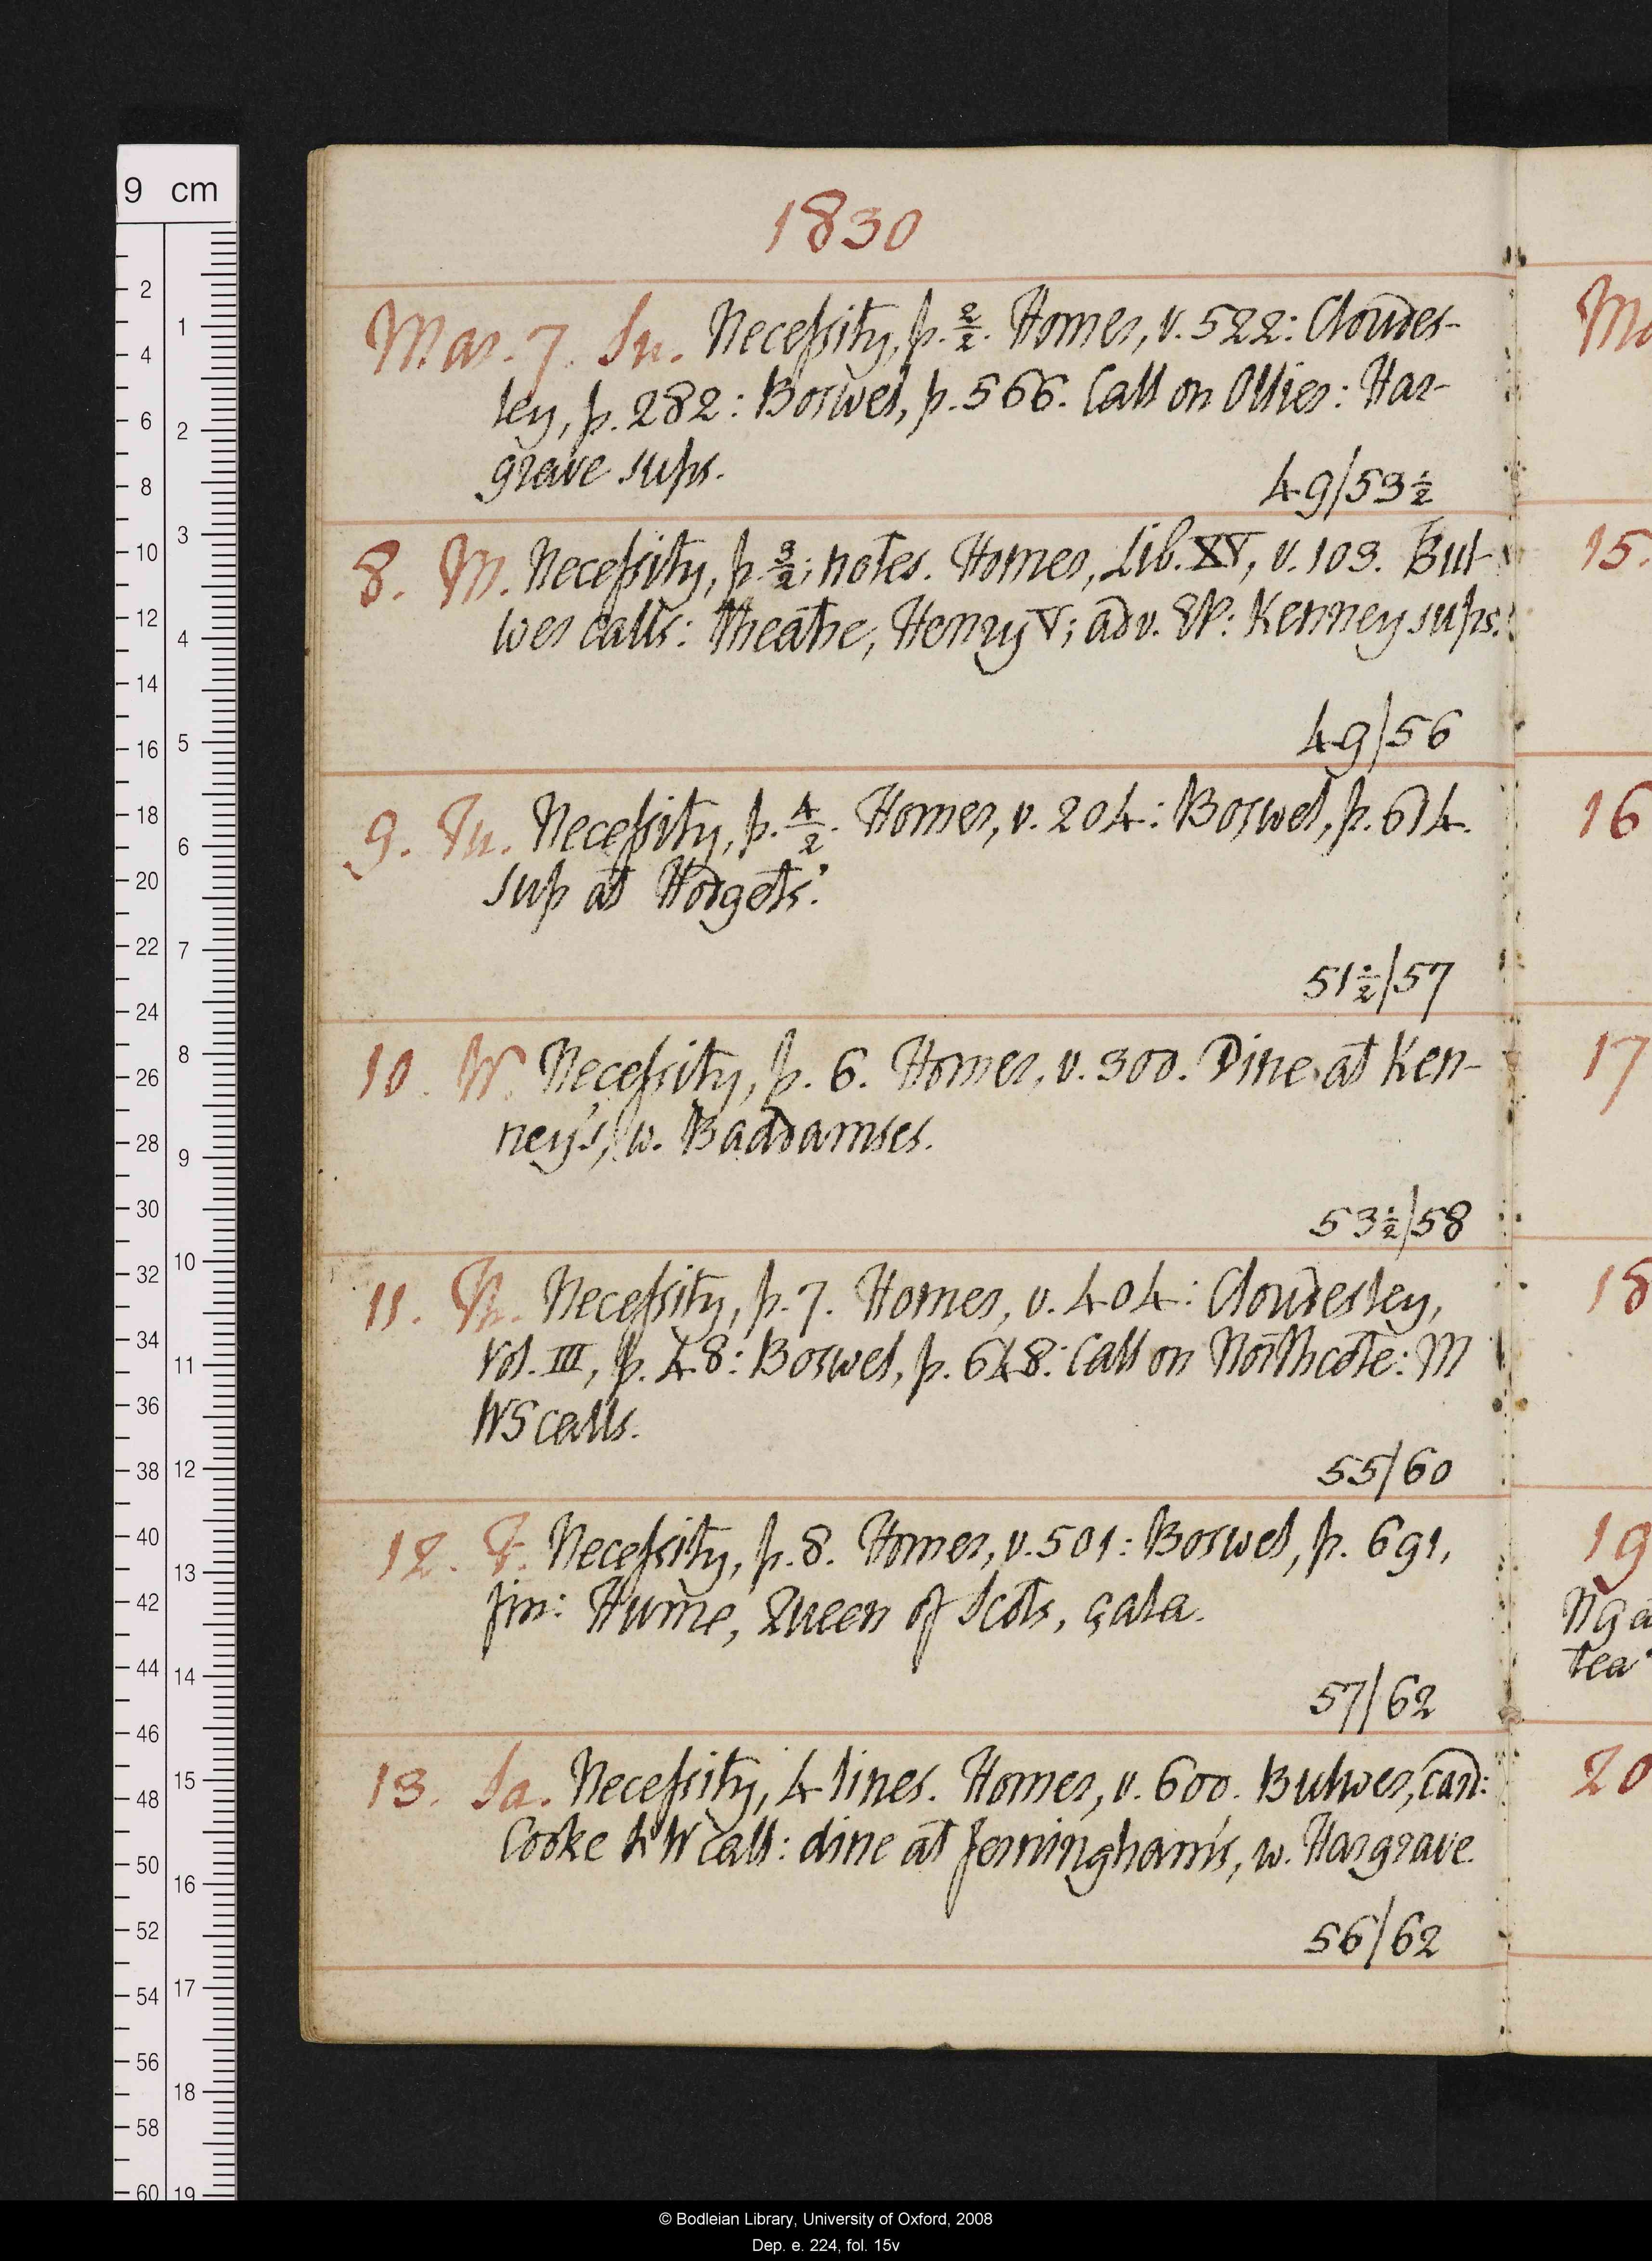 1830
Mar. 7. Su. Necessity, p. 2/2. Homer, v. 522: Cloudes-
ley, p. 282: Boswel, p. 566. Call on Ollier: Har-
grave sups.
49/53½
8. M. Necessity, p. 3/2; notes. Homer, Lib. XV, v. 103. Bul-
wer calls: theatre, Henry V; adv. : Kenney sups.
49/56
9. Tu. Necessity, p. 4/2. Homer, v. 204: Boswel, p. 614.
Sup at Hodgets'.
51½/57
10. W. Necessity, p. 6. Homer, v. 300. Dine at Ken-
ney's, w. Baddamses.
53½/58
11. Th. Necessity, p. 7. Homer, v. 404: Cloudesley,
Vol. III, p. 48: Boswel, p. 648: Call on Northcote: M
WS calls.
55/60
12. F. Necessity, p. 8. Homer, v. 501: Boswel, p. 691,
fin: Hume, Queen of Scots, çala.
57/62
13. Sa. Necessity, 4 lines. Homer, v. 600. Bulwer, card:
Cooke & W call: dine at Jerningham's, w. Hargrave.
56/62
Ma
15.
16
17
18
19
Ng a
tea
20
9 cm
2
4
6
8
10
12
14
16
18
20
22
24
26
28
30
32
34
36
38
40
42
44
46
48
50
52
54
56
58
60
1
2
3
4
5
6
7
8
9
10
11
12
13
14
15
16
17
18
19
© Bodleian Library, University of Oxford, 2008
Dep. e. 224, fol. 15v